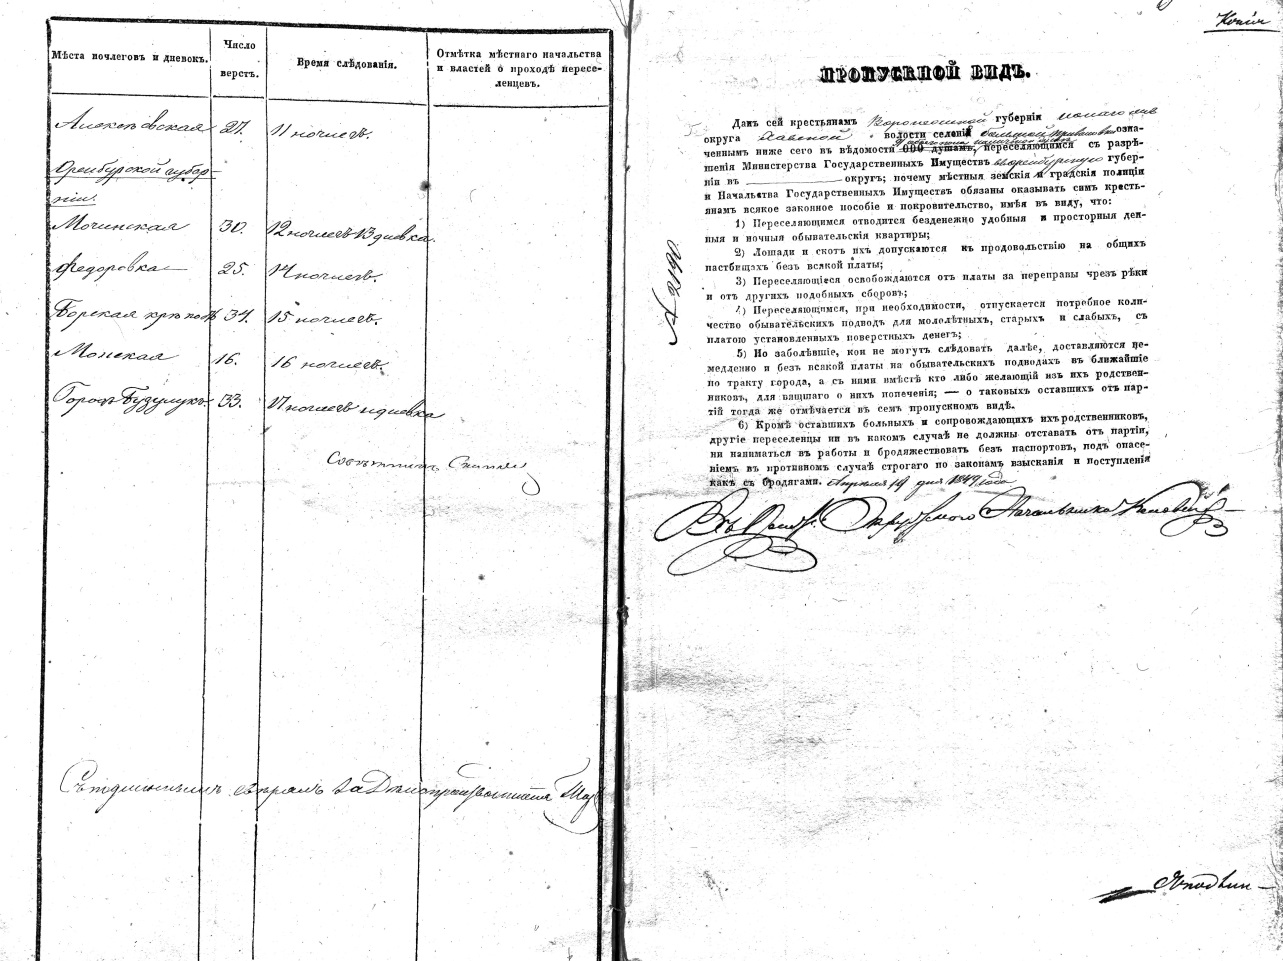 Мѣста ночлеговъ и дневокъ.
Число
верстъ.
Время слѣдованія.
Отмѣтка мѣстнаго начальства
и властей о проходѣ пересе-
ленцевъ.
Алексѣевская 27. 11 ночлегъ.
Оренбургской губер-
ніи.
Мочинская 30. 12 ночлегъ 13 дневка.
Федоровка 25. 14 ночлегъ.
Борская крѣпость 34. 15 ночлегъ.
16. 16 ночлегъ.
Городъ Бузулукъ. 33. 17 ночлегъ и дневка
Съ подлиннымъ вѣрно за
Копія
ПРОПУСКНОЙ ВИДЪ.
Данъ сей крестьянамъ Воронежской губерніи
округа волости селенія означ-
ченнымъ ниже сего въ вѣдомости 000 душамъ, переселяющимся съ разрѣ-
шенія Министерства Государственныхъ Имуществъ въ Оренбургскую губер-
ніи въ округъ; почему мѣстныя земскія и градскія полиціи
и Начальства Государственныхъ Имуществъ обязаны оказывать симъ кресть-
янамъ всякое законное пособіе и покровительство, имѣя въ виду, что:
1) Переселяющимся отводится безденежно удобныя и просторныя ден-
ныя и ночныя обывательскія квартиры;
2) Лошади и скотъ ихъ допускаются къ продовольствію на общихъ
пастбищахъ безъ всякой платы;
3) Переселяющіеся освобождаются отъ платы за переправы чрезъ рѣки
и отъ другихъ подобныхъ сборовъ;
4) Переселяющимся, при необходимости, отпускается потребное коли-
чество обывательскихъ подводъ для малолѣтныхъ, старыхъ и слабыхъ, съ
платою установленныхъ поверстныхъ денегъ;
5) Но заболѣвшіе, кои не могутъ слѣдовать далѣе, доставляются не-
медленно и безъ всякой платы на обывательскихъ подводахъ въ ближайшіе
по тракту города, а съ ними вмѣстѣ кто либо желающій изъ ихъ родствен-
никовъ, для вящшаго о нихъ попеченія; — о таковыхъ оставшихъ отъ пар-
тій тогда же отмѣчается въ семъ пропускномъ видѣ.
6) Кромѣ оставшихъ больныхъ и сопровождающихъ ихъ родственниковъ,
другіе переселенцы ни въ какомъ случаѣ не должны отставать отъ партіи,
ни наниматься въ работы и бродяжествовать безъ паспортовъ, подъ опасе-
ніемъ въ противномъ случаѣ строгаго по законамъ взысканія и поступленія
какъ съ бродягами. Апрѣля 19 дня 1849 года
Окружнаго Начальника
№ 2190